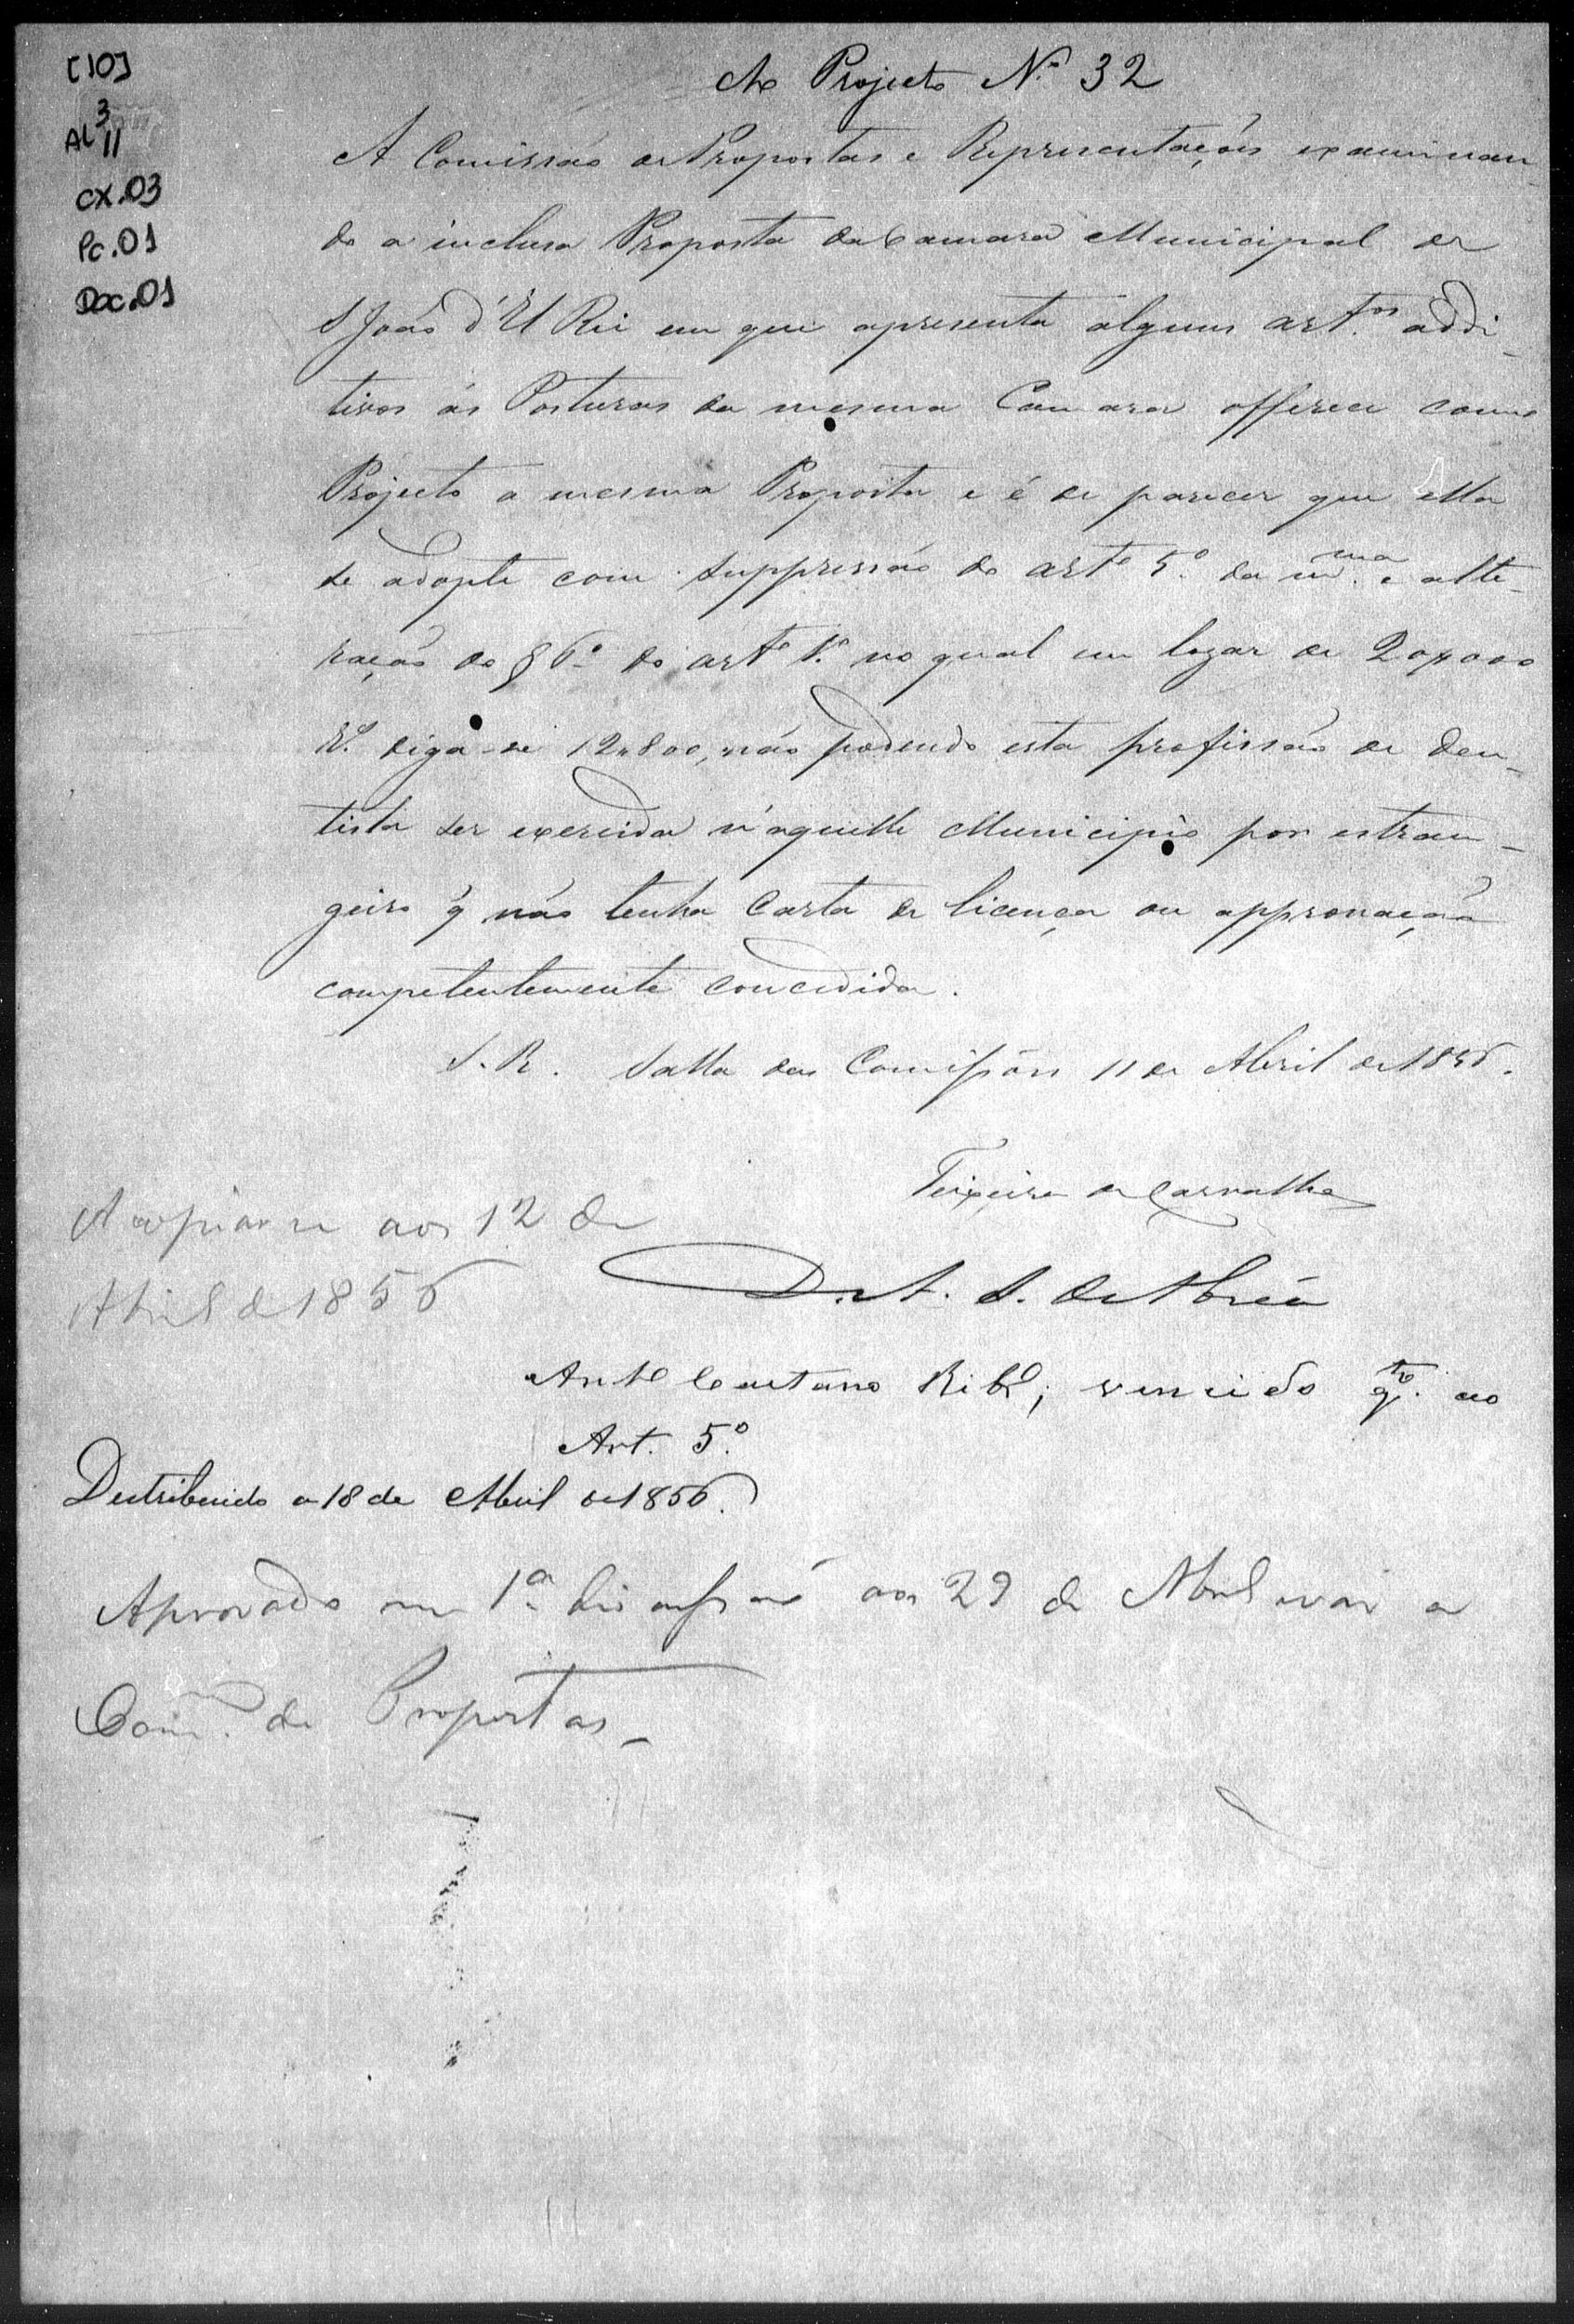 [10]
AL 3
11
CX.03
Pc.01
Doc.01
Ao Projecto N.º 32
A Comissão de Propostas e Representações examinan-
do a inclusa Proposta da Camara Municipal de
S João d'El Rei em que apresenta alguns art.os addi-
tivos ás Posturas da mesma Camara offerece como
Projecto a mesma Proposta e é de parecer que ella
se adopte com suppressão do art.º 5.º da m.ma e alte-
ração do § 6.º do art.º 1.º no qual em logar de 20$000
Rs. diga-se 12$800, não podendo esta profissão de den-
tista ser exercida n'aquelle Municipio por estran-
geiro q̃ não tenha Carta de licença ou approvação
competentemente concedida.
S. R. Salla das Comissões 11 de Abril de 1856.
Teixeira de Carvalho
A copiar-se aos 12 de
Abril de 1856
D. A. S. de Abréu
Ant.º Caetano Ribr.º; vencido q.to ao
Art. 5.º
Destribuido a 18 de Abril de 1856.
Aprovado em 1.ª discussão aos 29 de Abril vai a
Com.m de Propostas_